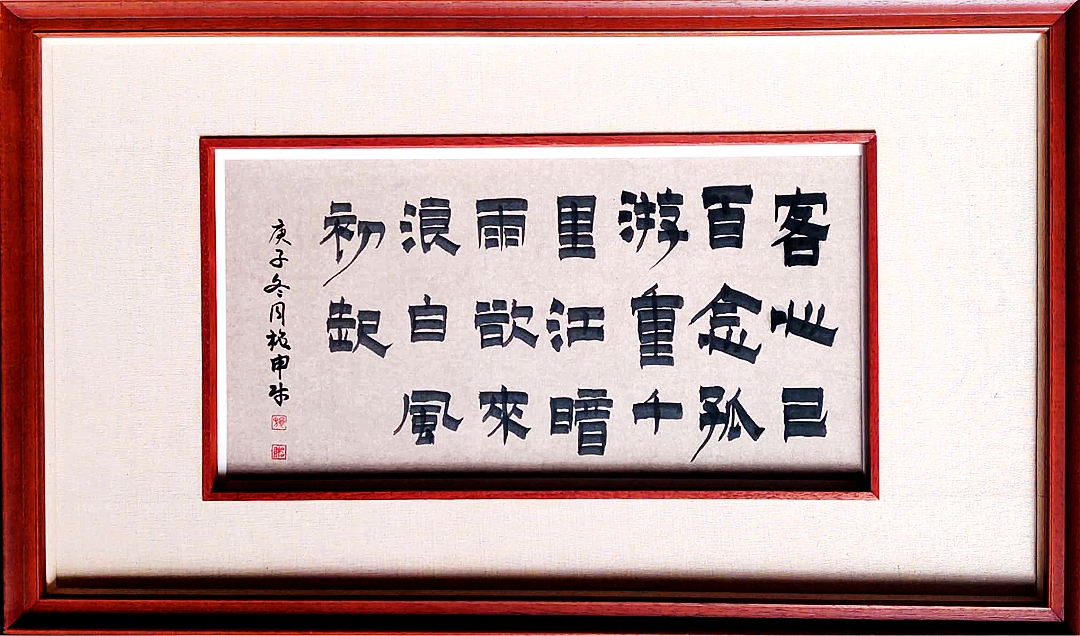 客心已
百念孤
游重千
里江暗
雨欲來
浪白風
初起
庚子冬月申书